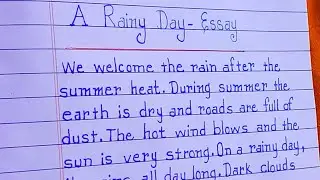 A Rainy Day - Essay
We welcome the rain after the
summer heat. During summer the
earth is dry and roads are full of
dust. The hot wind blows and the
sun is very strong. On a rainy day,
all day long. Dark clouds